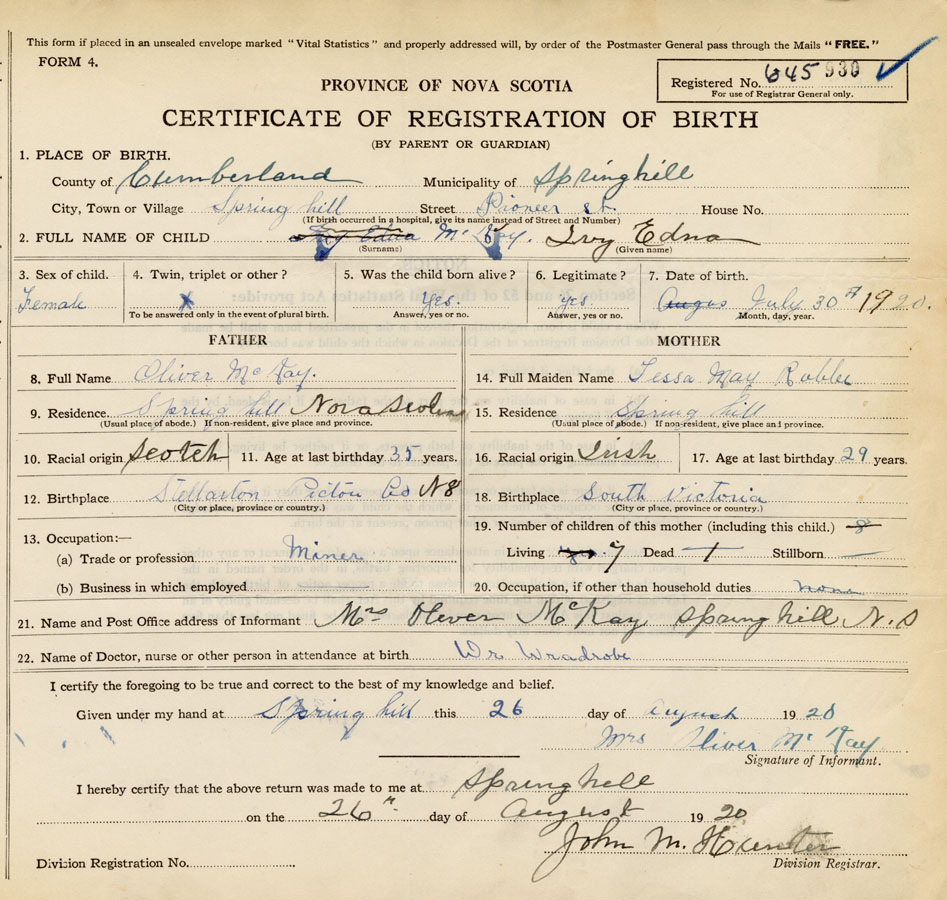 This form if placed in an unsealed envelope marked "Vital Statistics" and properly addressed will, by order of the Postmaster General pass through the Mails "FREE."
FORM 4.
Registered No. 645930
For use of Registrar General only.
PROVINCE OF NOVA SCOTIA
CERTIFICATE OF REGISTRATION OF BIRTH
(BY PARENT OR GUARDIAN)
1. PLACE OF BIRTH.
County of Cumberland Municipality of Springhill
City, Town or Village Spring hill Street Pioneer st. House No.
(If birth occurred in a hospital, give its name instead of Street and Number)
2. FULL NAME OF CHILD Ivy Edna McKay. Ivy Edna
(Surname) (Given name)
3. Sex of child. 4. Twin, triplet or other? 5. Was the child born alive? 6. Legitimate? 7. Date of birth.
Female x Yes. yes. Augus July 30th 1920.
To be answered only in the event of plural birth. Answer, yes or no. Answer, yes or no. Month, day, year.
FATHER
8. Full Name Oliver McKay.
9. Residence Spring hill Nova Scotia
(Usual place of abode.) If non-resident, give place and province.
10. Racial origin Scotch 11. Age at last birthday 35 years.
12. Birthplace Stellarton Pictou Co NS
(City or place, province or country.)
13. Occupation:—
(a) Trade or profession Miner
(b) Business in which employed
MOTHER
14. Full Maiden Name Tessa May
15. Residence Spring hill
(Usual place of abode.) If non-resident, give place and province.
16. Racial origin Irish 17. Age at last birthday 29 years.
18. Birthplace South Victoria
(City or place, province or country.)
19. Number of children of this mother (including this child.) 8
Living 7 Dead 1 Stillborn —
20. Occupation, if other than household duties none
21. Name and Post Office address of Informant Mrs Oliver McKay Spring hill N.S
22. Name of Doctor, nurse or other person in attendance at birth
I certify the foregoing to be true and correct to the best of my knowledge and belief.
Given under my hand at Spring hill this 26 day of August 1920
Mrs Oliver McKay
Signature of Informant.
I hereby certify that the above return was made to me at Springhill
on the 26th day of August 1920
John M. Hunter
Division Registration No. Division Registrar.